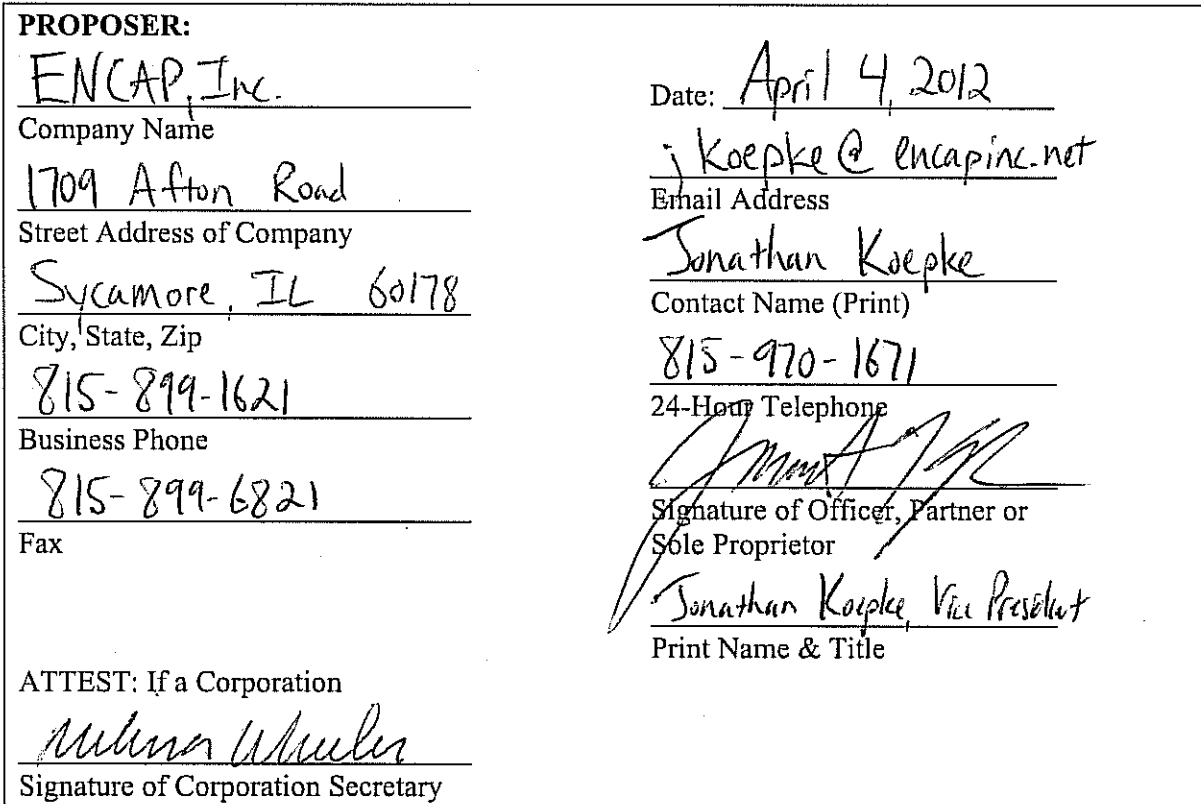 PROPOSER:
ENCAP, Inc.
Company Name
1709 Afton Road
Street Address of Company
Sycamore, IL 60178
City, State, Zip
815-899-1621
Business Phone
815-899-6821
Fax
ATTEST: If a Corporation
Wheeler
Signature of Corporation Secretary
Date: April 4, 2012
jkoepke@encapinc.net
Email Address
Jonathan Koepke
Contact Name (Print)
815-970-1671
24-Hour Telephone
Signature of Officer, Partner or
Sole Proprietor
Jonathan Koepke, Vice President
Print Name & Title